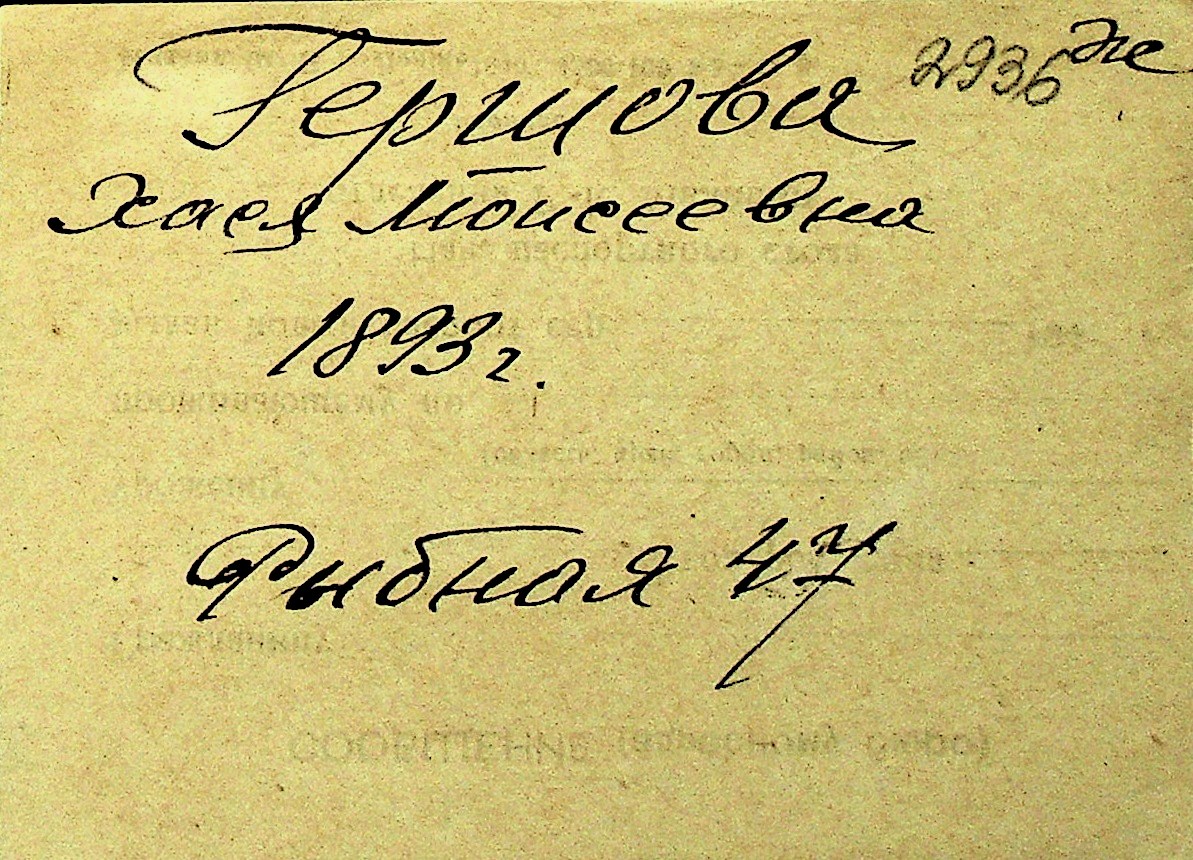 Гершова 2936 же
Хася Моисеевна
1893 г.
Рыбная 47